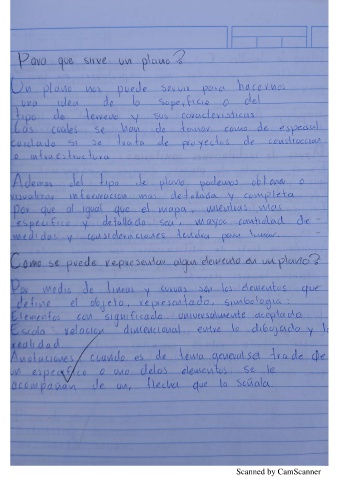 Para que sirve un plano?
Un plano nos puede servir para hacernos
una idea de la superficie o del
tipo de terreno y sus caracteristicas
Las cuales se han de tomar como de especial
cuidado si se trata de proyectos de construccion
o infraestructura
Ademas del tipo de plano podemos obtener o
visualizar informacion mas detallada y completa
por que al igual que el mapa, mientras mas
especifico y detallado sea, mayor cantidad de
medidas y consideraciones tendra para tomar.
Como se puede representar algun elemento en un plano?
Por medio de lineas y curvas son los elementos que
define el objeto, representado, simbologia:
Elementos con significado universalmente aceptado
Escala: relacion dimencional entre lo dibujado y la
realidad
Anotaciones, cuando es de tema general se trade de
un especifico o uno delos elementos se le
acompañan de un, flecha que lo señala.
Scanned by CamScanner